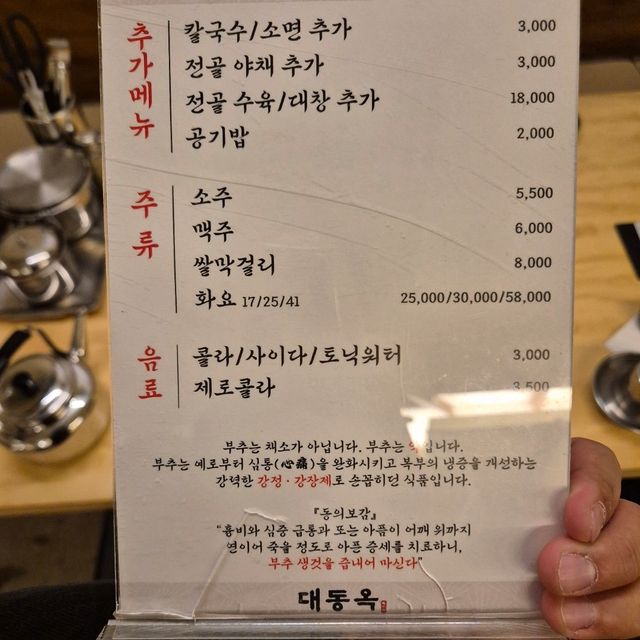 추가메뉴
칼국수/소면 추가 3,000
전골 야채 추가 3,000
전골 수육/대창 추가 18,000
공기밥 2,000
주류
소주 5,500
맥주 6,000
쌀막걸리 8,000
화요 17/25/41 25,000/30,000/58,000
음료
콜라/사이다/토닉워터 3,000
제로콜라 3,500
부추는 채소가 아닙니다. 부추는 약입니다.
부추는 예로부터 심통(心痛)을 완화시키고 복부의 냉증을 개선하는
강력한 강정·강장제로 손꼽히던 식품입니다.
『동의보감』
“흉비와 심중 급통과 또는 아픔이 어깨 위까지
연이어 죽을 정도로 아픈 증세를 치료하니,
부추 생것을 즙내어 마신다”
대동옥